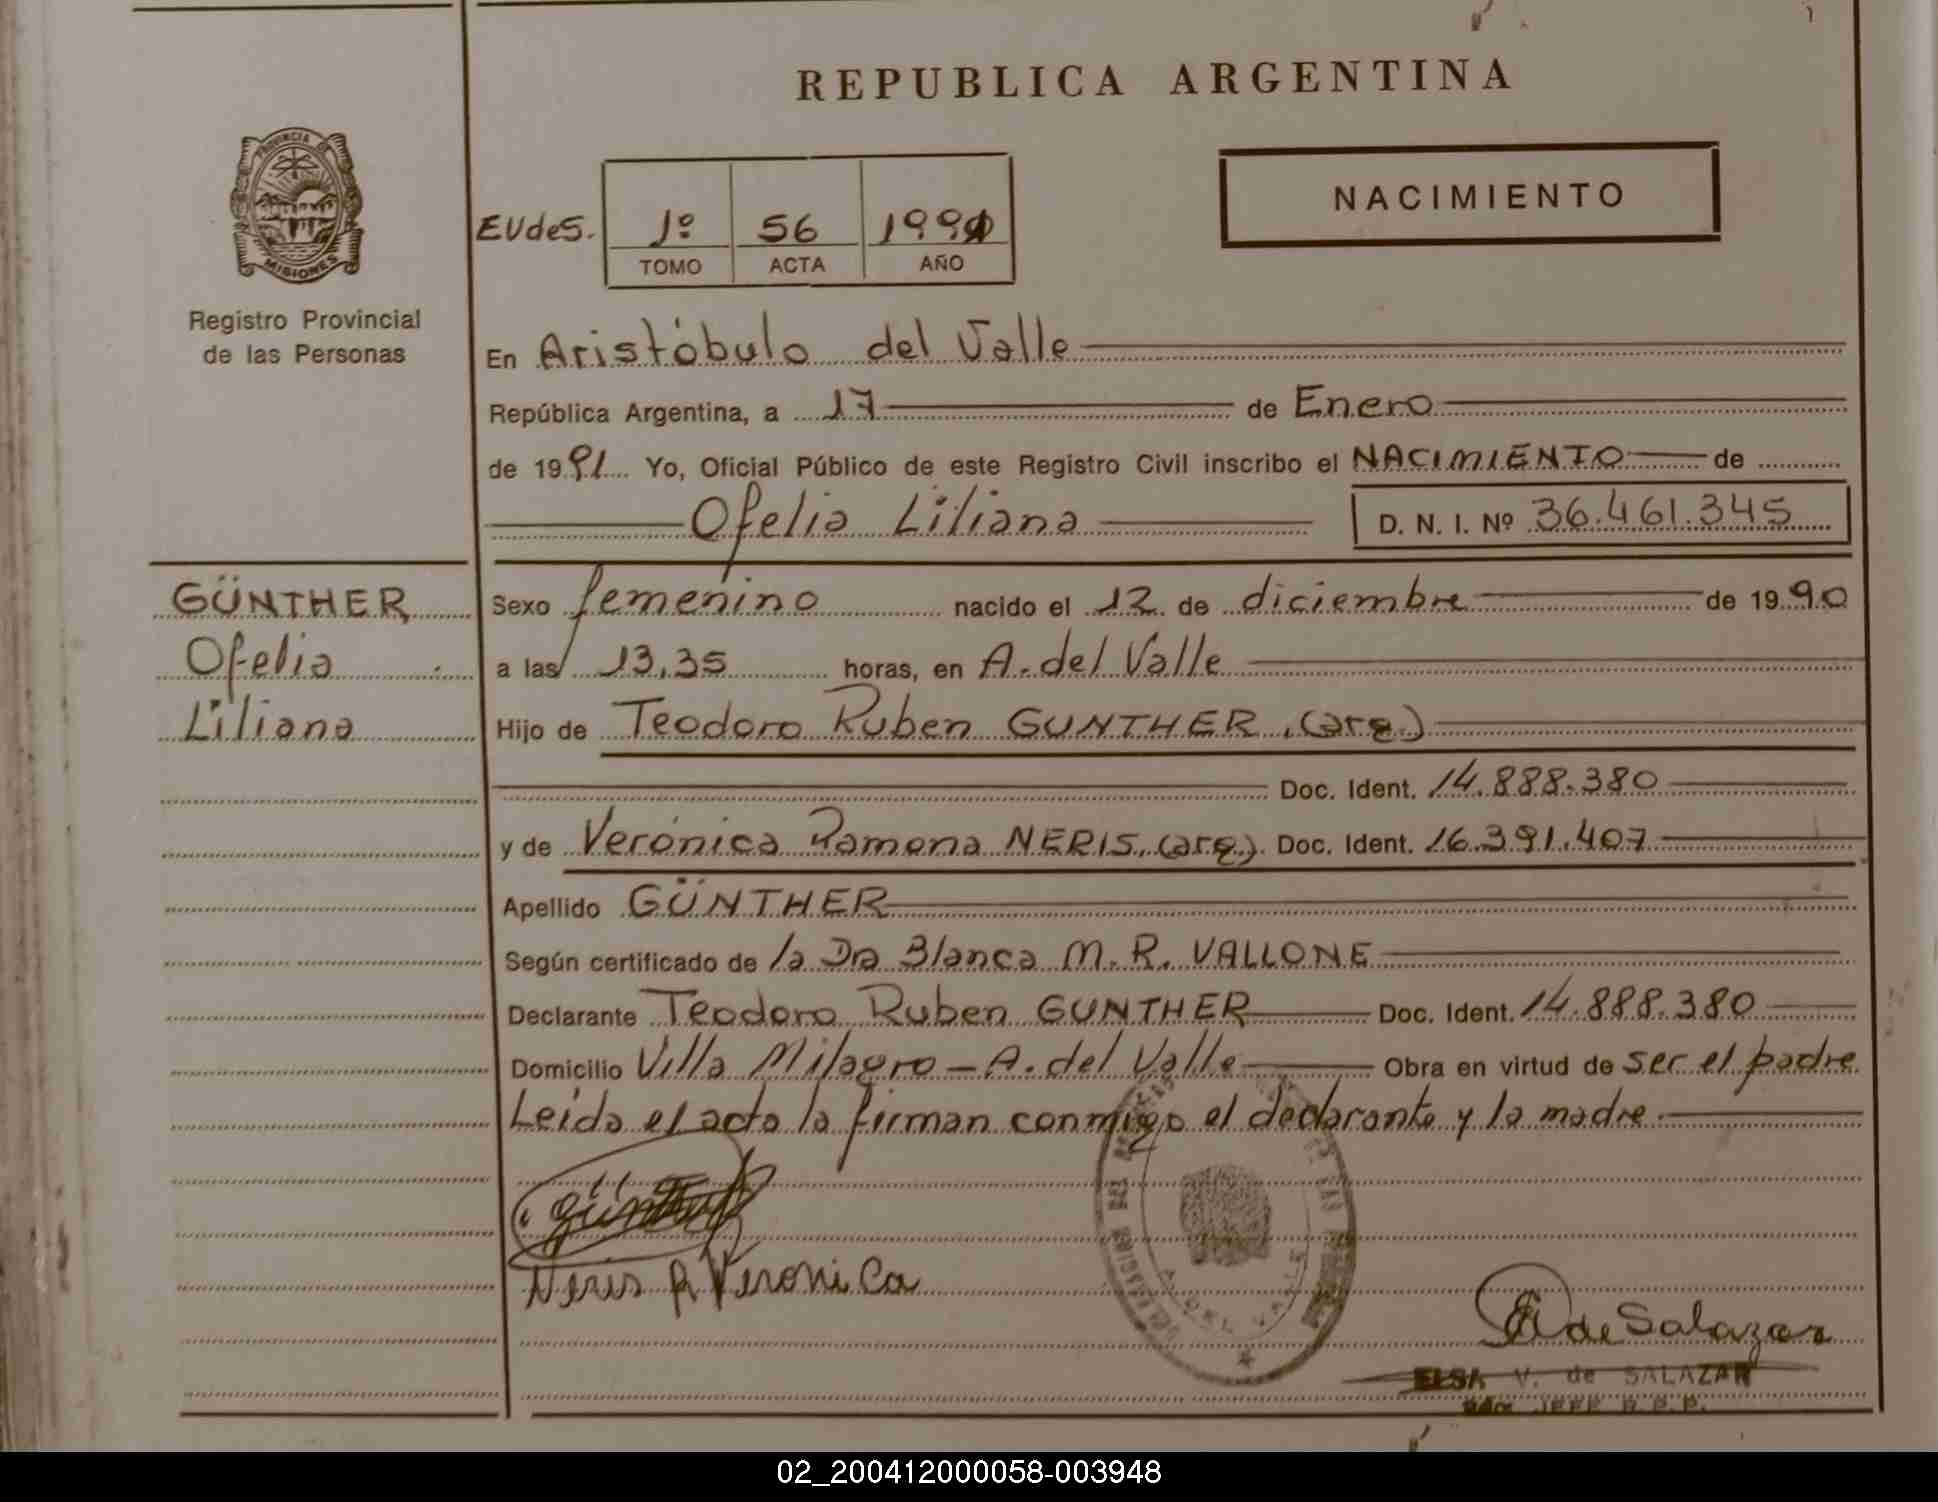 REPUBLICA ARGENTINA
PROVINCIA DE
MISIONES
Registro Provincial
de las Personas
NACIMIENTO
EVdeS. 1º 56 1991
TOMO ACTA AÑO
En Aristóbulo del Valle
República Argentina, a 17 de Enero
de 1991 Yo, Oficial Público de este Registro Civil inscribo el NACIMIENTO de
Ofelia Liliana D. N. I. Nº 36.461.345
GÜNTHER
Ofelia
Liliana
Sexo femenino nacido el 12 de diciembre de 1990
a las 13,35 horas, en A. del Valle
Hijo de Teodoro Ruben GUNTHER, (arg.)
Doc. Ident. 14.888.380
y de Verónica Ramona NERIS, (arg.). Doc. Ident. 16.391.407
Apellido GÜNTHER
Según certificado de la Dra Blanca M. R. VALLONE
Declarante Teodoro Ruben GUNTHER Doc. Ident. 14.888.380
Domicilio Villa Milagro - A. del Valle Obra en virtud de ser el padre
Leida el acta la firman conmigo el declarante y la madre.
Neris R Veronica
A. DEL VALLE
de Salazar
ELSA V. de SALAZAR
JEFE R.P.P.
02_200412000058-003948